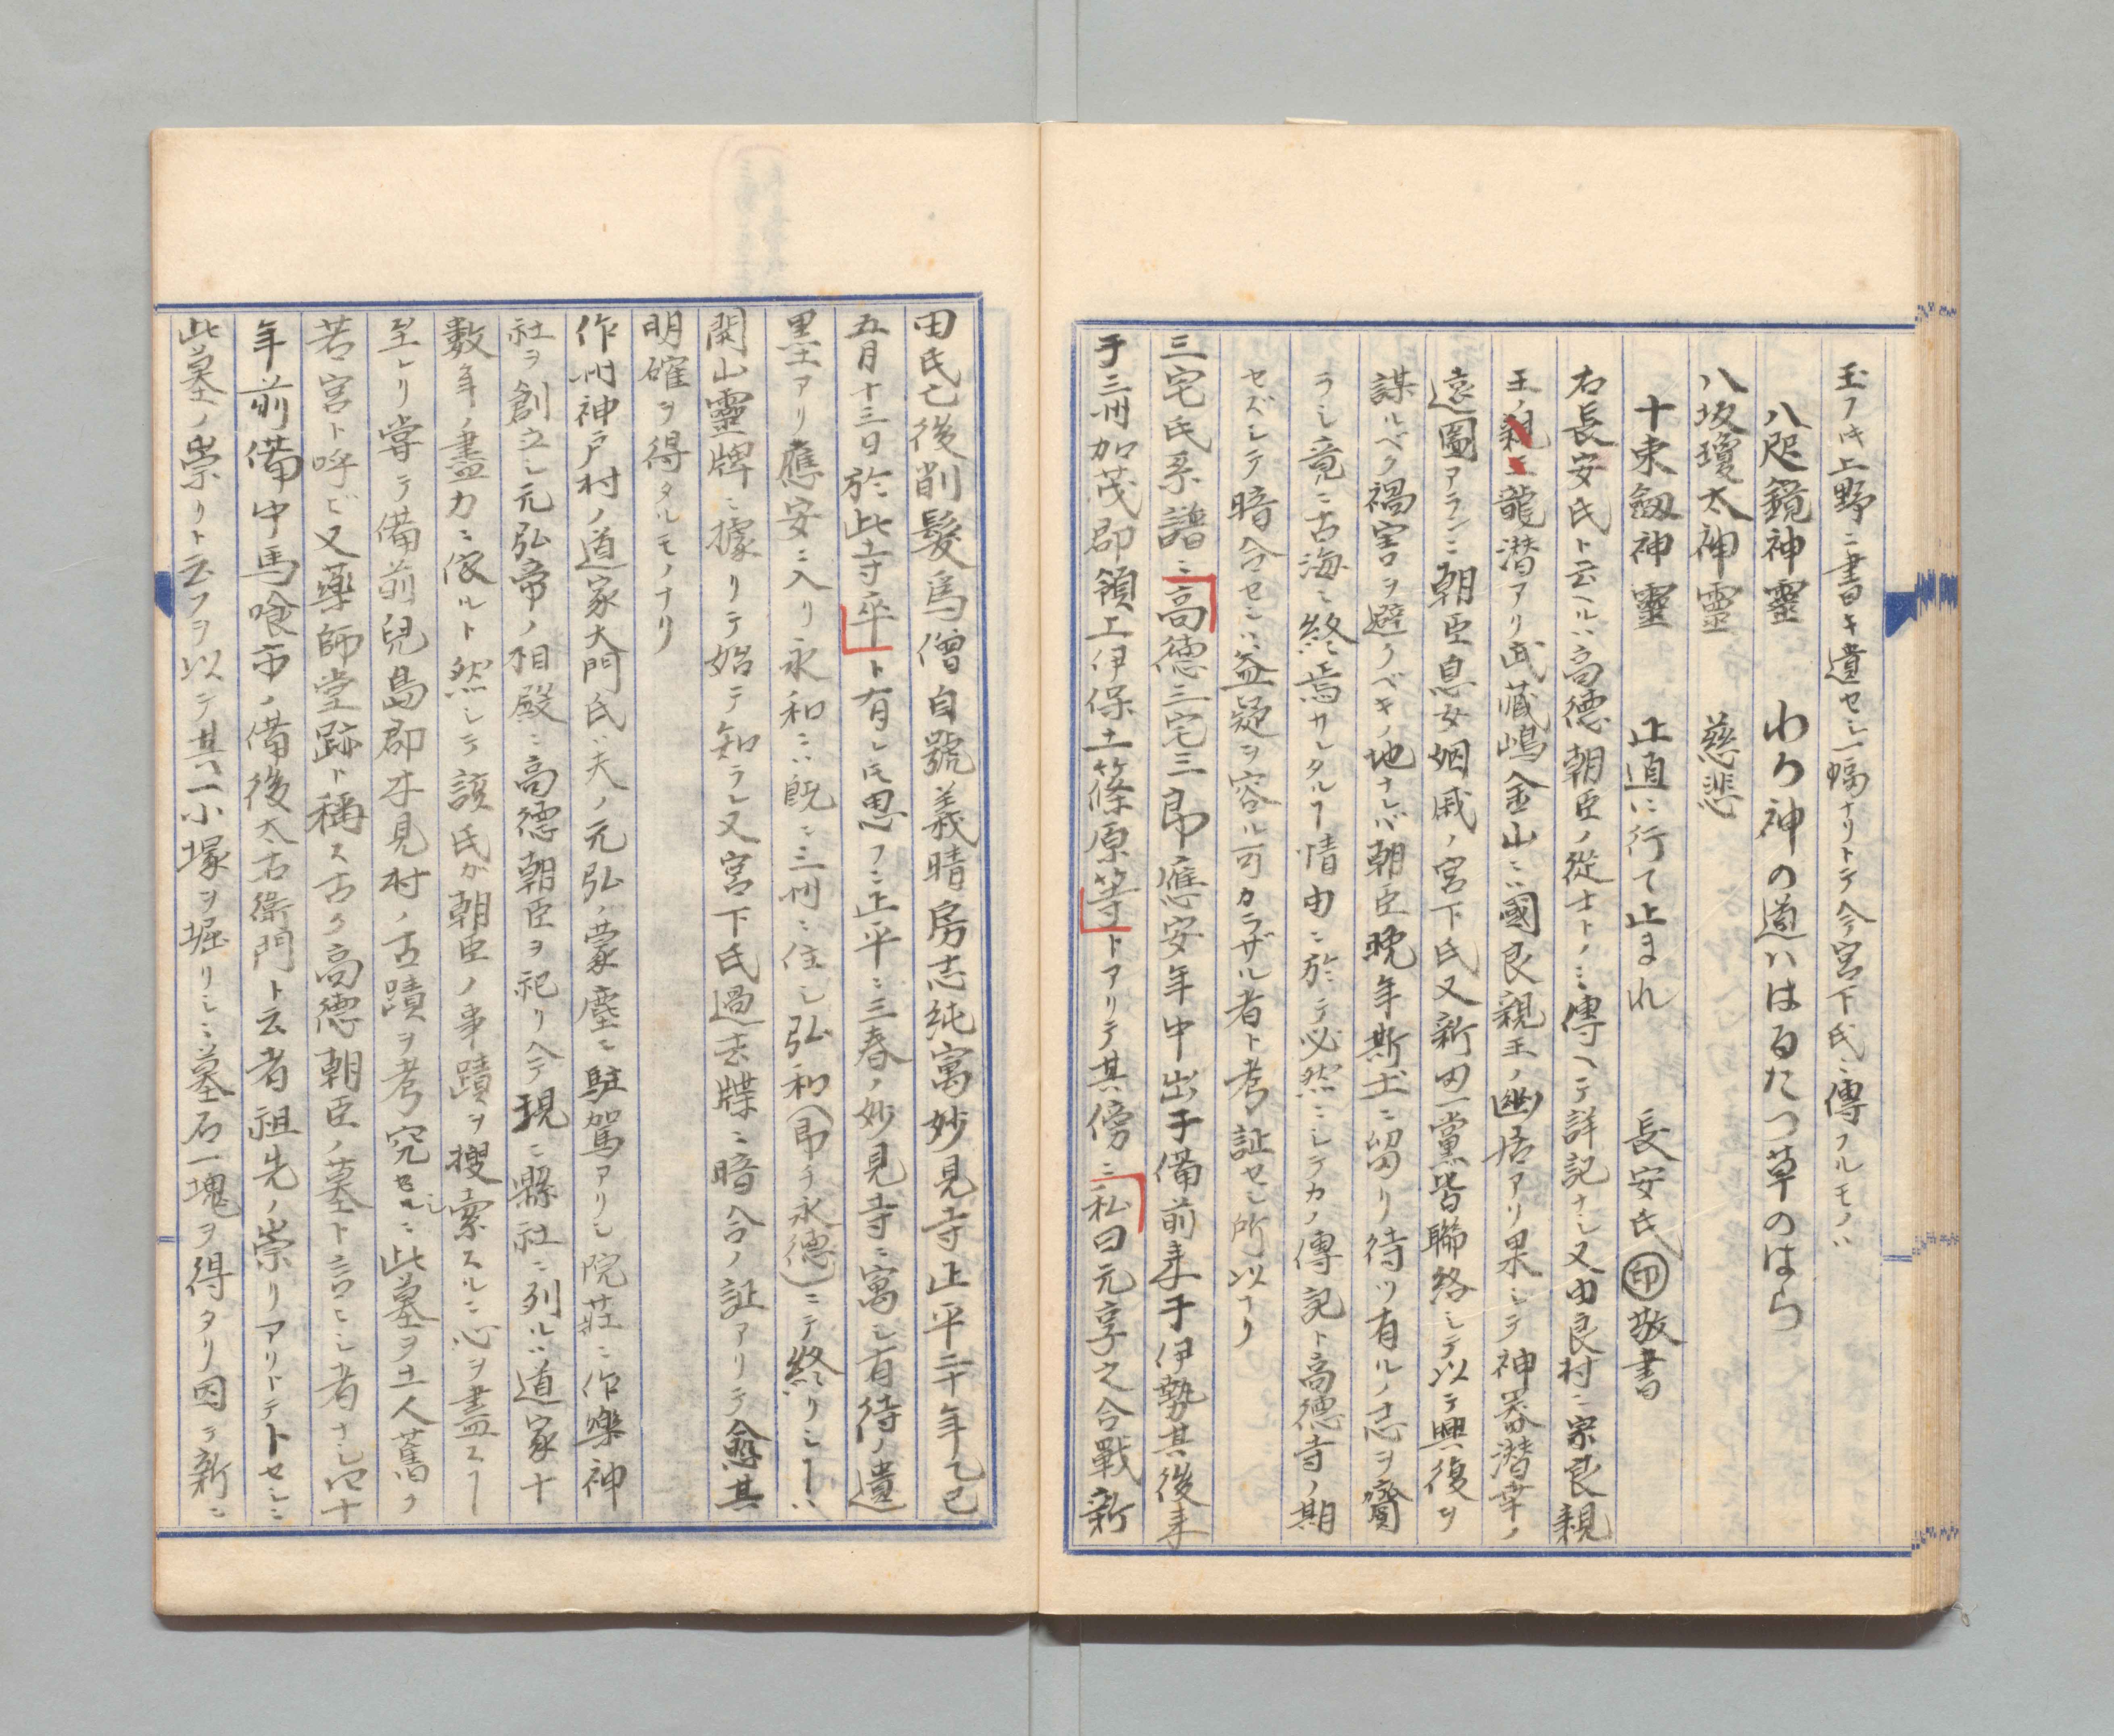 玉フ氏上野ニ書キ遺セシ一幅ナリトテ今宮下氏ニ傳フルモノハ
八咫鏡神靈　わか神の道ハはるたつ草のはら
八坂瓊太神靈　慈悲
十束劔神靈　止道に行て止まれ　長安氏㊞敬書
右長安氏ト云ヘルハ高德朝臣ノ從士トノミ傳ヘテ詳記ナシ又由良村ニ宗良親
王ノ親王龍潜アリ武藏嶋金山ニハ國良親王ノ幽居アリ果シテ神器潜幸ノ
遠圖アランニ朝臣息女姻戚ノ宮下氏又新田一黨皆聯絡シテ以テ興復ヲ
謀ルベク禍害ヲ避クベキノ地ナレバ朝臣晩年斯土ニ留リ待ツ有ルノ志ヲ齎
ラシ竟ニ古海ニ終焉サレタルヿ情由ニ於テ必然ニシテカノ傳記ト高德寺ノ期
セズシテ暗合セシハ益疑ヲ容ル可カラザル者ト考証セシ所以ナリ
三宅氏系譜ニ高德三宅三郎應安年中出于備前来于伊勢其後来
于三州加茂郡領上伊保土篠原等トアリテ其傍ニ私曰元享之合戰新
田氏亡後削髪爲僧自號義晴房志純寓妙見寺正平二十年乙巳
五月十三日於此寺卒ト有レ氏思フニ正平ニ三春ノ妙見寺ニ寓シ有待ノ遺
墨アリ應安ニ入リ永和ニハ既ニ三州ニ住シ弘和(即チ永德)ニテ終リシヿハ
開山靈牌ニ據リテ始テ知ラレ又宮下氏過去牒ニ暗合ノ証アリテ愈其
明確ヲ得タルモノナリ
作州神戸村ノ道家大門氏ハ夫ノ元弘ノ蒙塵ニ駐駕アリシ院莊ニ作樂神
社ヲ創立シ元弘帝ノ相殿ニ高德朝臣ヲ祀リ今テ現ニ縣社ニ列ルハ道家十
數年ノ盡力ニ依ルト然シテ該氏ガ朝臣ノ事蹟ヲ捜索スルニ心ヲ盡スヿ
至レリ甞テ備前兒島郡木見村ノ古蹟ヲ考究セシニ此墓ヲ土人舊ノ
若宮ト呼ビ又藥師堂跡ト稱ス古ク高德朝臣ノ墓ト言ヒシ者ナシ四十
年前備中馬喰市ノ備後太右衛門ト云者祖先ノ崇リアリトテトセシニ
此墓ノ崇リト云フヲ以テ其一小塚ヲ堀リシニ墓石一塊ヲ得タリ因テ新ニ